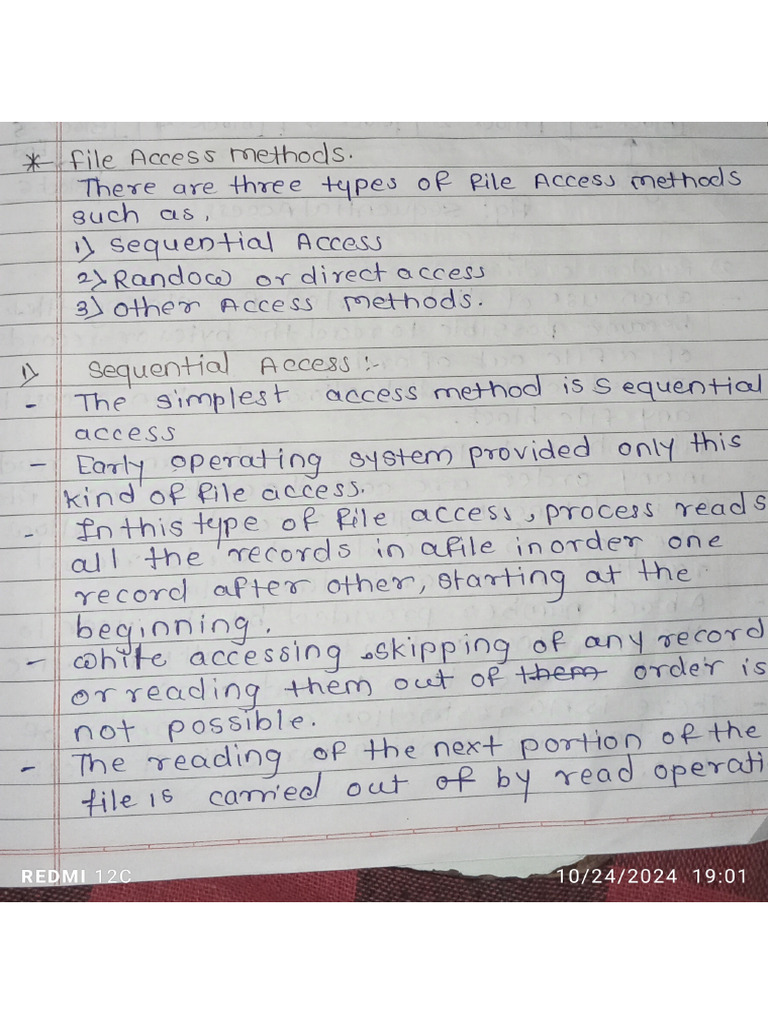 * File Access methods.
There are three types of File Access methods
such as,
1) Sequential Access
2) Randow or direct access
3) Other Access Methods.
1) Sequential Access :-
- The simplest access method is sequential
access
- Early operating system provided only this
kind of file access.
- In this type of file access, process reads
all the records in a file in order one
record after other, starting at the
beginning.
- White accessing skipping of any record
or reading them out of them order is
not possible.
- The reading of the next portion of the
file is carried out of by read operati
REDMI 12C
10/24/2024 19:01